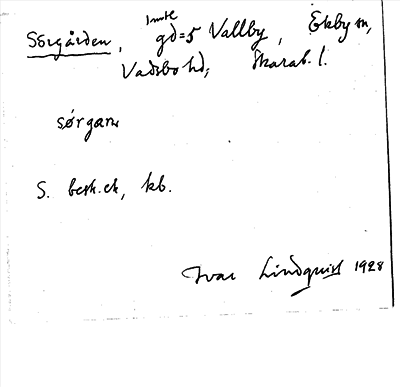 Sörgården, gd=5 Vallby, Ekby sn,
Vadsbo hd, Skarab. l.
sørgam
S. besk. ek, kb.
Ivar Lindquist 1928